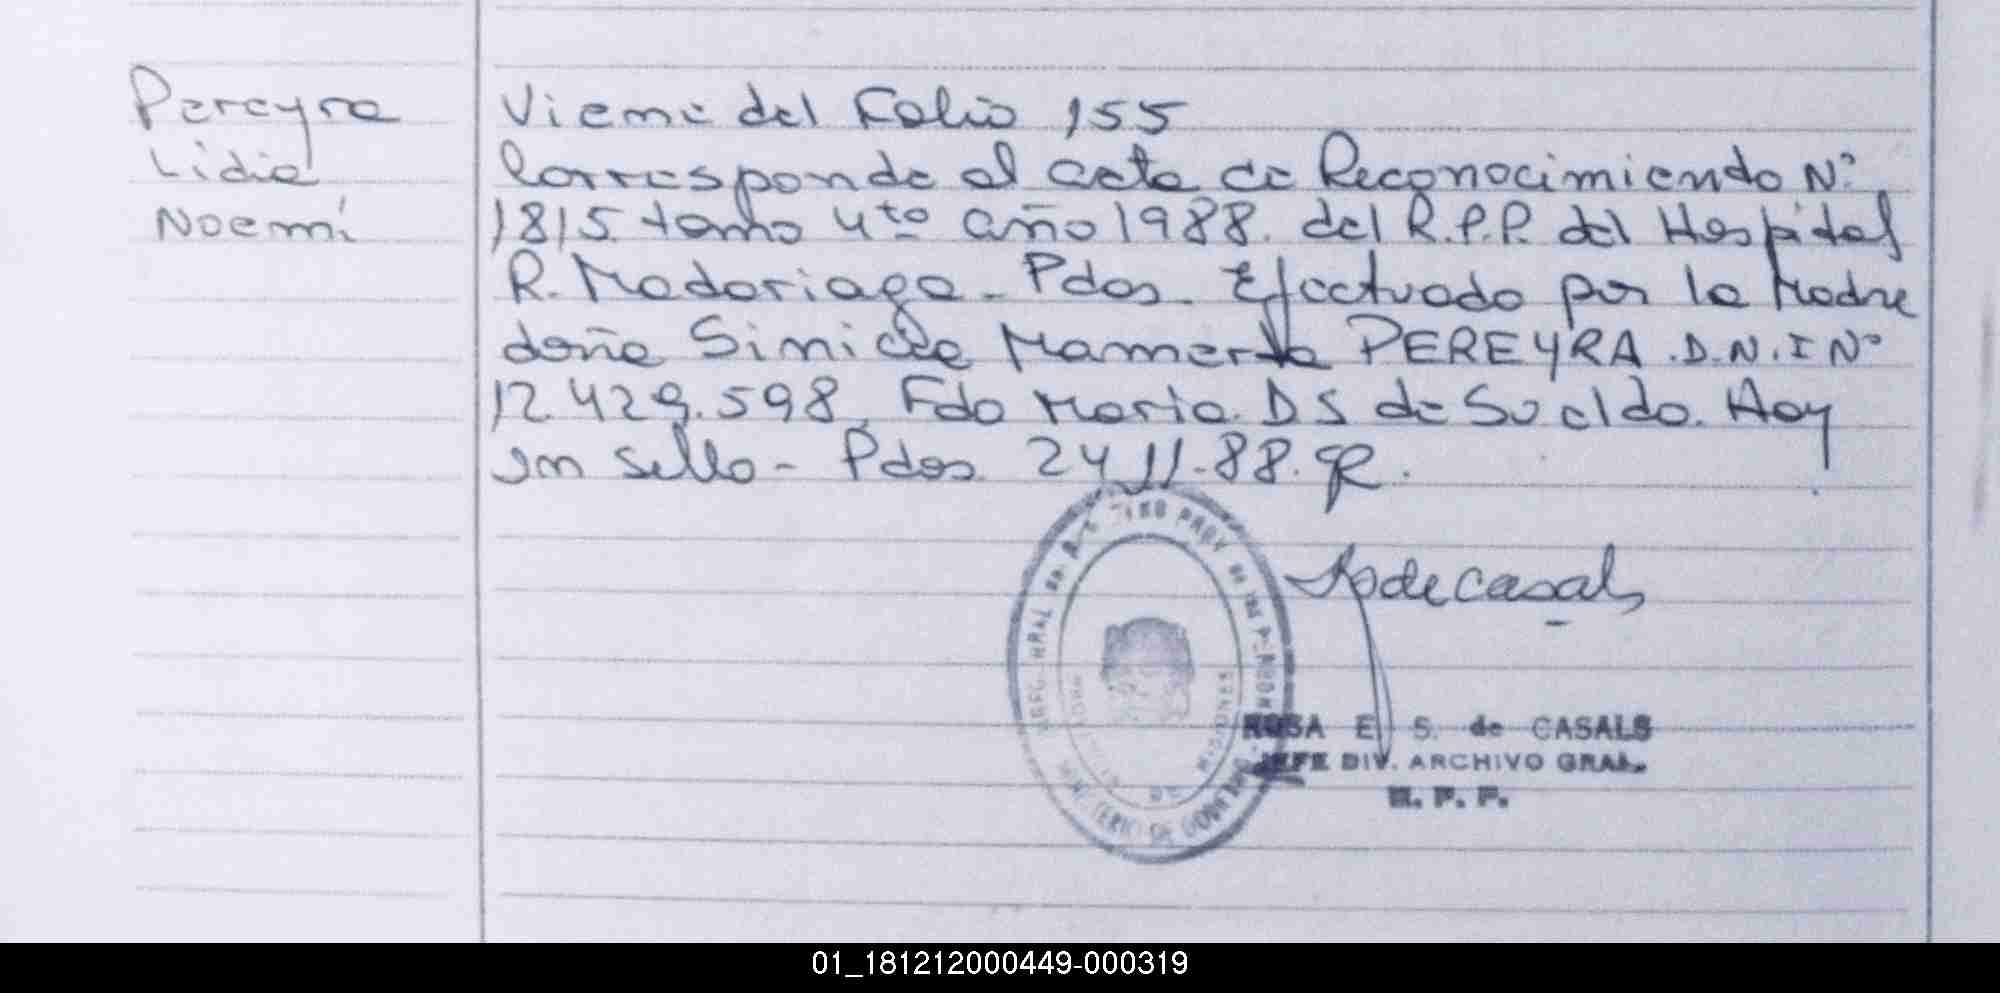 Pereyra
Lidia
Noemí
Viene del Folio 155
Corresponde al acta de Reconocimiento Nº
1815 tomo 4to año 1988. del R.P.P. del Hospital
R. Madariaga - Pdas. Efectuado por la Madre
doña Mamerta PEREYRA . D.N.I Nº
12.429.598. Fdo Maria. D S de Sueldo. Hay
un sello - Pdas 24 11-88.
ROSA E. S. de CASALS
JEFE DIV. ARCHIVO GRAL.
R. P. P.
MINISTERIO DE GOBIERNO
DE MISIONES
01_181212000449-000319